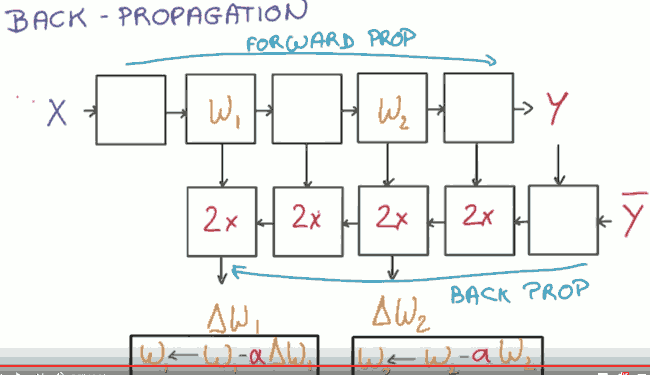 BACK - PROPAGATION
FORWARD PROP
X W₁ W₂ Y
2x 2x 2x 2x Y̅
BACK PROP
ΔW₁ ΔW₂
W₁ ← W₁ - α ΔW₁
← - α W₂